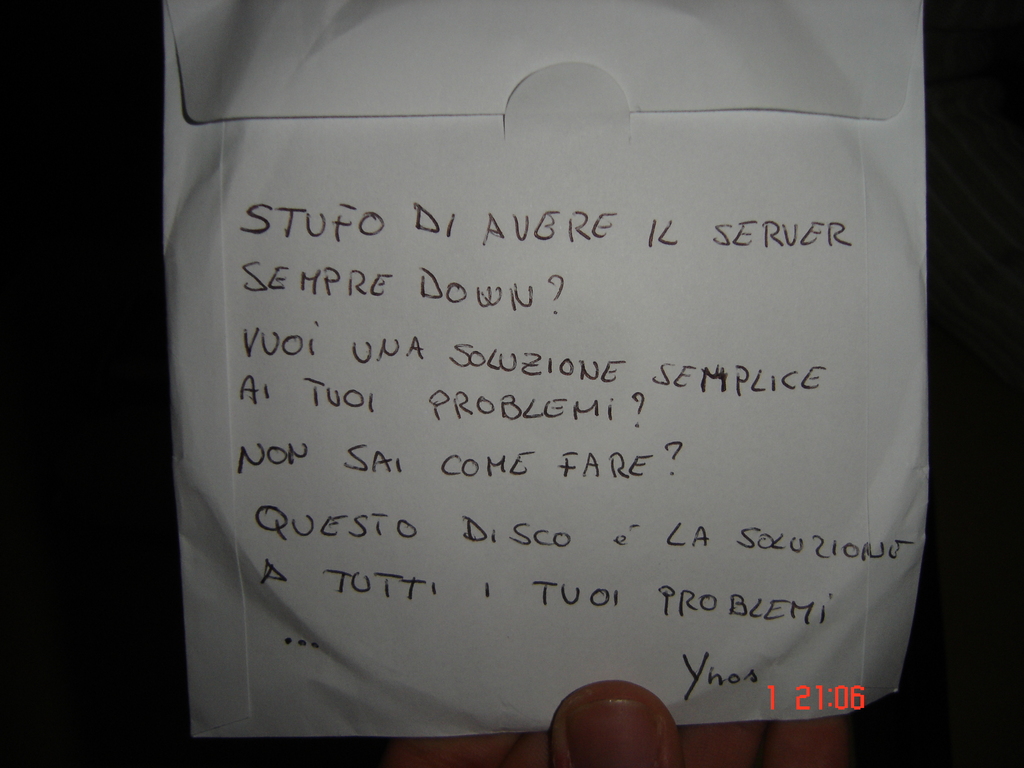 STUFO DI AVERE IL SERVER
SEMPRE DOWN?
VUOI UNA SOLUZIONE SEMPLICE
AI TUOI PROBLEMI?
NON SAI COME FARE?
QUESTO DISCO è LA SOLUZIONE
A TUTTI I TUOI PROBLEMI
...
Ynos
1 21:06